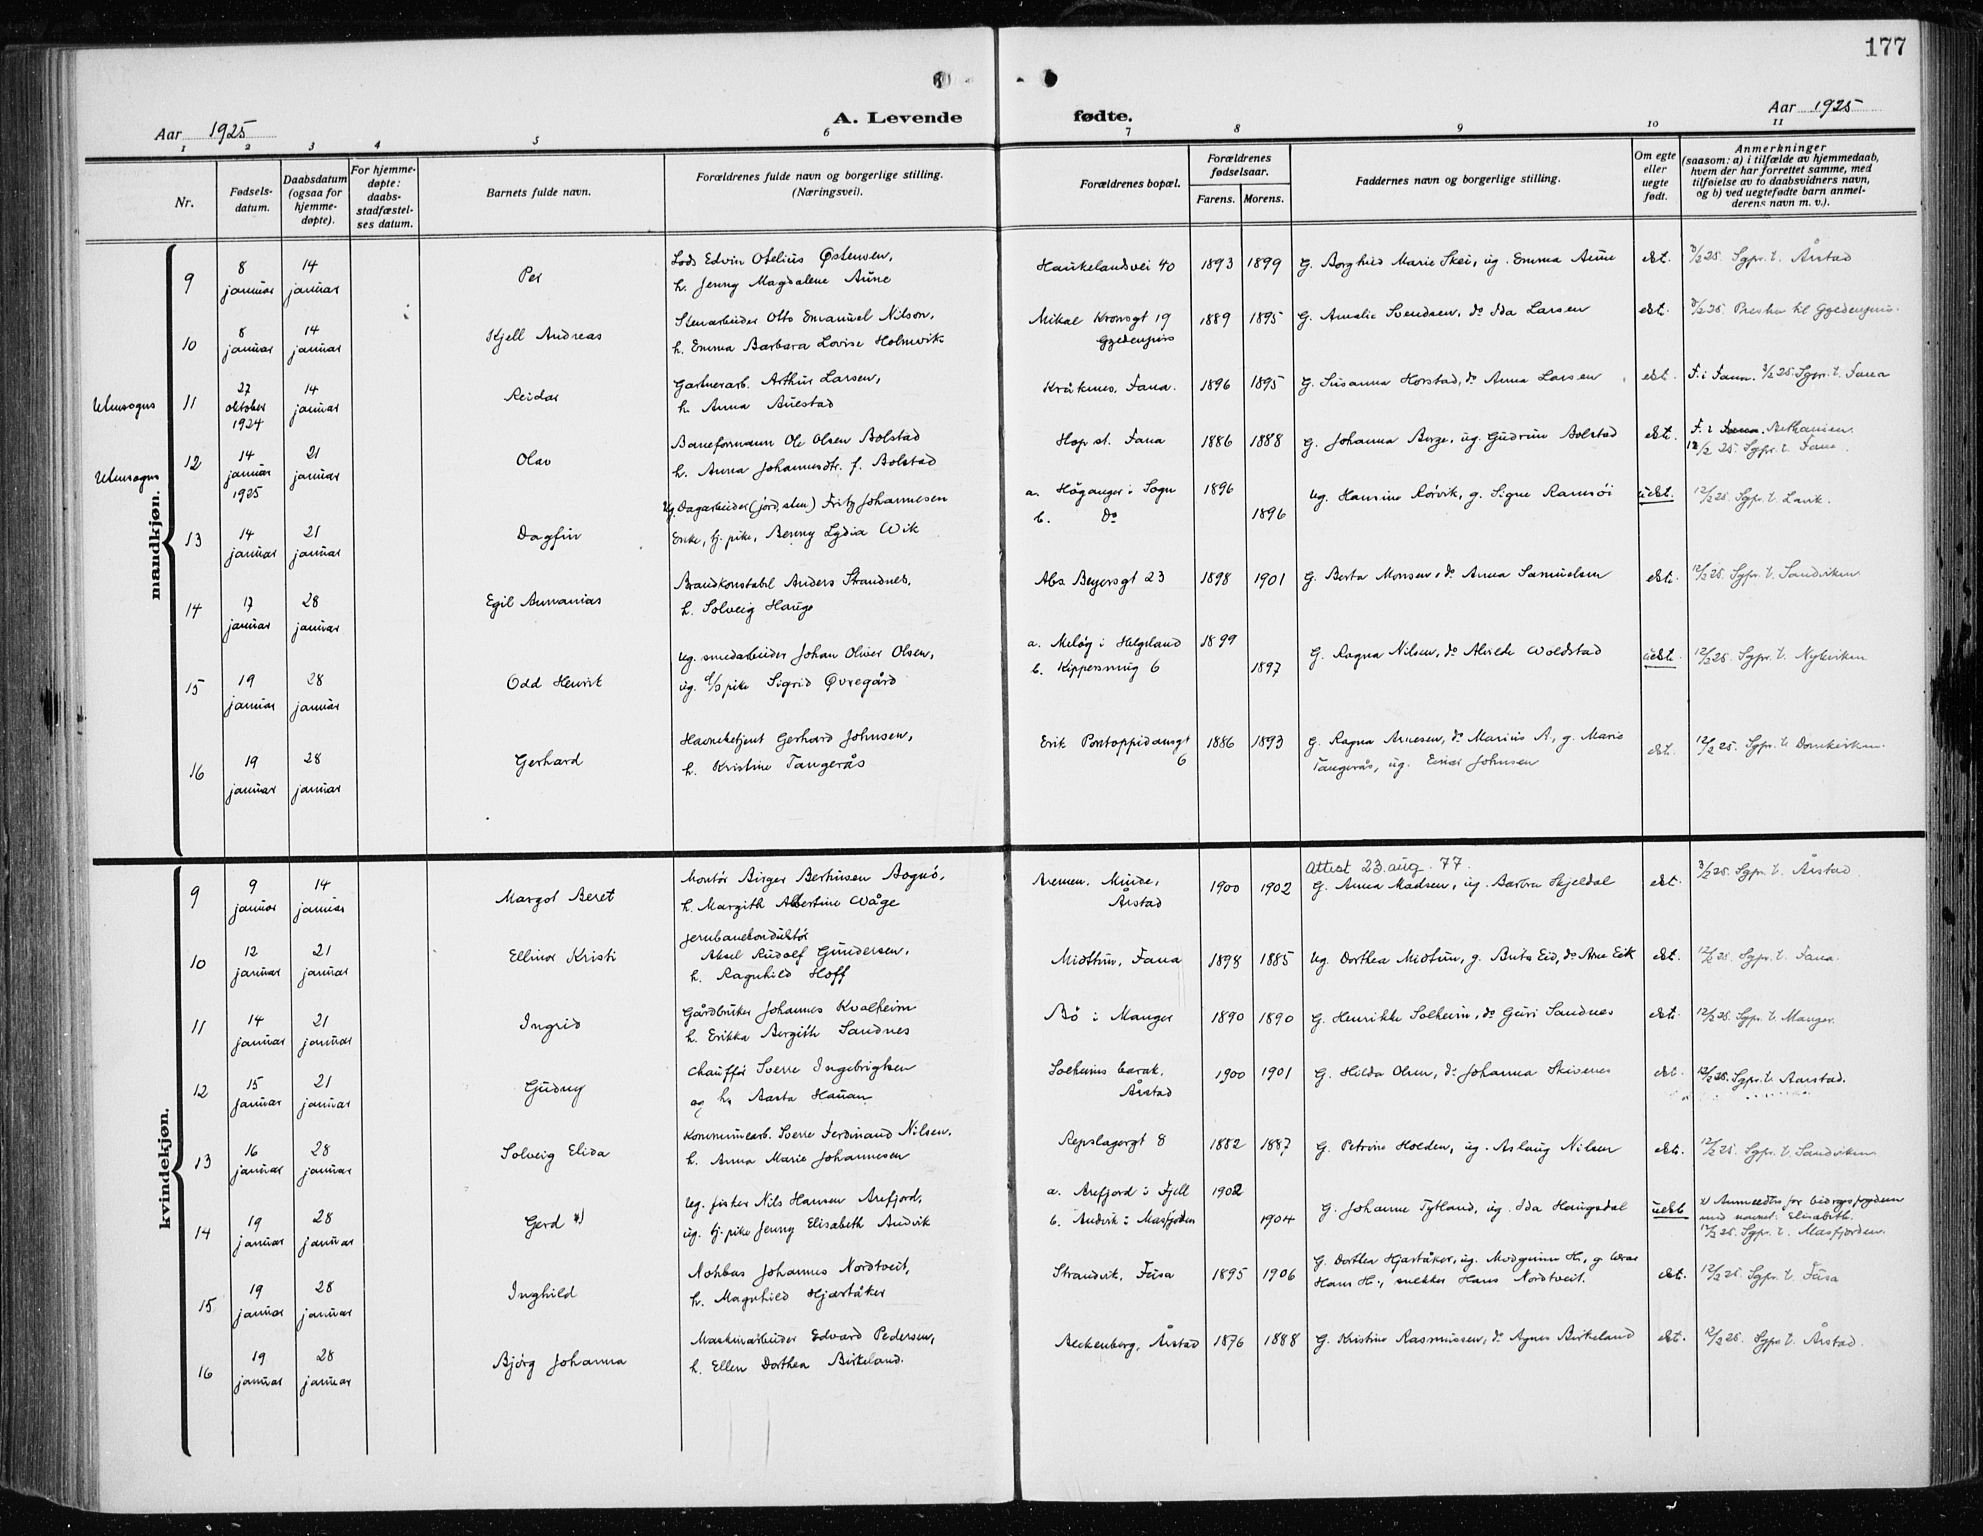 177
Aar 1925
A. Levende fødte.
Aar 1925
1 2 3 4 5 6 7 8 9 10 11
Nr.
Fødsels-
datum.
Daabsdatum
(ogsaa for
hjemme-
døpte).
For hjemme-
døpte:
daabs-
stadfæstel-
ses datum.
Barnets fulde navn.
Forældrenes fulde navn og borgerlige stilling.
(Næringsvei).
Forældrenes bopæl.
Forældrenes
fødselsaar.
Farens. Morens.
Faddernes navn og borgerlige stilling.
Om egte
eller
uegte
født.
Anmerkninger
(saasom: a) i tilfælde av hjemmedaab,
hvem der har forrettet samme, med
tilføielse av to daabsvidners navn,
og b) ved uegtefødte barn anmel-
derens navn m. v.).
mandkjøn.
9 8 januar 14 januar Per Lods Edvin Otelius Østensen,
h. Jenny Magdalene Aune
Haukelandvei 40 1893 1899 G. Borghild Marie Skei, ug. Emma Aune ekt. 3/2 25. Sgpr. t. Årstad
10 8 januar 14 januar Kjell Andreas Stenarbeider Otto Emanuel Nilson,
h. Emma Barbara Lovise Holmvik
Mikal Kronsgt 19 1889 1895 G. Amalie Svendsen, do Ida Larsen ekt. 3/2 25.
Utensogns 11 27 oktober 1924 14 januar Reidar Gartnerarb. Arthur Larsen,
h. Anna Auestad
Kråknes, Fana. 1896 1895 G. Susanna Horstad, do Anna Larsen ekt. F. i Fana. 3/2 25 Sgpr. t. Fana
Utensogns 12 14 januar 1925 21 januar Olav Baneformann Ole Olsen Bolstad
h. Anna Johannesdtr. f. Bolstad
Hop st. Fana 1886 1888 G. Johanna Berge, ug. Gudrun Bolstad ekt. F. i Fana.
12/2 25. Sgpr. t. Fana.
13 14 januar 21 januar Dagfin Ug. Dagarbeider (jord, sten) Fritz Johannesen
Enke, tj. pike, Benny Lydia Wik
a. Høganger i Sogn 1896
b. Do 1896
Ug. Hansine Rørvik, g. Signe Ramsøi uekt. 12/2 25. Sgpr. t. Lavik.
14 17 januar 28 januar Egil Annanias Brandkonstabel Anders Strandnes,
h. Solveig Hauge
Abs. Beyersgt 23 1898 1901 G. Berta Monsen, do Anna Samuelsen ekt. 12/2 25. Sgpr. t. Sandviken
15 19 januar 28 januar Odd Henrik Ug. smedarbeider Johan Oliver Olsen,
ug. pike Sigrid Øvregård
a. Meløy i Helgeland 1899
b. Kippersmug 6 1897
G. Ragna Nilsen, do Alvilde Woldstad uekt. 12/2 25. Sgpr. t. Nykirken
16 19 januar 28 januar Gerhard Havnebetjent Gerhard Johnsen,
h. Kristine Tangerås
Erik Pontoppidansgt
6 1886 1893 G. Ragna Arnesen, do Marius A., g. Marie
Tangerås, ug. Einar Johnsen ekt. 12/2 25. Sgpr. t. Domkirken.
kvindekjøn.
Attest 23 aug. 77.
9 9 januar 14 januar Margot Beret Montør Birger Berhusen Bognø,
h. Margith Albertine Wåge
Aremen. Minde,
Årstad 1900 1902 G. Anna Madsen, ug. Barbra Skjeldal ekt. 3/2 25. Sgpr. t. Årstad
10 12 januar 21 januar Ellinor Kristi Jernbanekonduktør
Aksel Rudolf Gundersen,
h. Ragnhild Hoff
Midttun, Fana 1898 1885 Ug. Dorthea Midttun, g. Brita Eid, do Arne Eik ekt. 12/2 25. Sgpr. t. Fana.
11 14 januar 21 januar Ingrid Gårdbruker Johannes Kvalheim
h. Erikka Bergith Sandnes
Bø i Manger 1890 1890 G. Henrikke Solheim, do Guri Sandnes ekt. 12/2 25. Sgpr. t. Manger.
12 15 januar 21 januar Gudny Chauffør Sverre Ingebrigtsen
og h. Aasta Hauan
Solheims barak,
Årstad 1900 1901 G. Hilda Olsen, do Johanna Skivenes ekt. 12/2 25. Sgpr. t. Aarstad.
13 16 januar 28 januar Solveig Elida Kommunearb. Sverre Ferdinand Nilsen,
h. Anna Marie Johannesen
Repslagergt 8 1882 1887 G. Petrine Holden, ug. Aslaug Nilsen ekt. 12/2 25. Sgpr. t. Sandviken
14 19 januar 28 januar Gerd x) Ug. fisker Nils Hansen Arefjord,
ug. tj. pike Jenny Elisabeth Andvik
a. Arefjord i Fjell 1902
b. Andvik i Masfjorden 1904
G. Johanne Tytland, ug. Ida Haugsdal uekt x) Anmeldtes for bidragsfogden
med navnet: Elisabeth.
12/2 25. Sgpr. t. Masfjorden.
15 19 januar 28 januar Inghild Notbas Johannes Nordtveit,
h. Magnhild Hjartåker
Strandvik, Fusa 1895 1906 G. Dorthea Hjartåker, ug. Modgunn H., g.
Hans H., snekker Hans Nordtveit. ekt. 12/2 25. Sgpr. t. Fusa
16 19 januar 28 januar Bjørg Johanna Maskinarbeider Edvard Pedersen,
h. Ellen Dorthea Birkeland.
Bleckenberg, Årstad 1876 1888 G. Kristine Rasmussen, do Agnes Birkeland ekt. 12/2 25. Sgpr. t. Årstad.